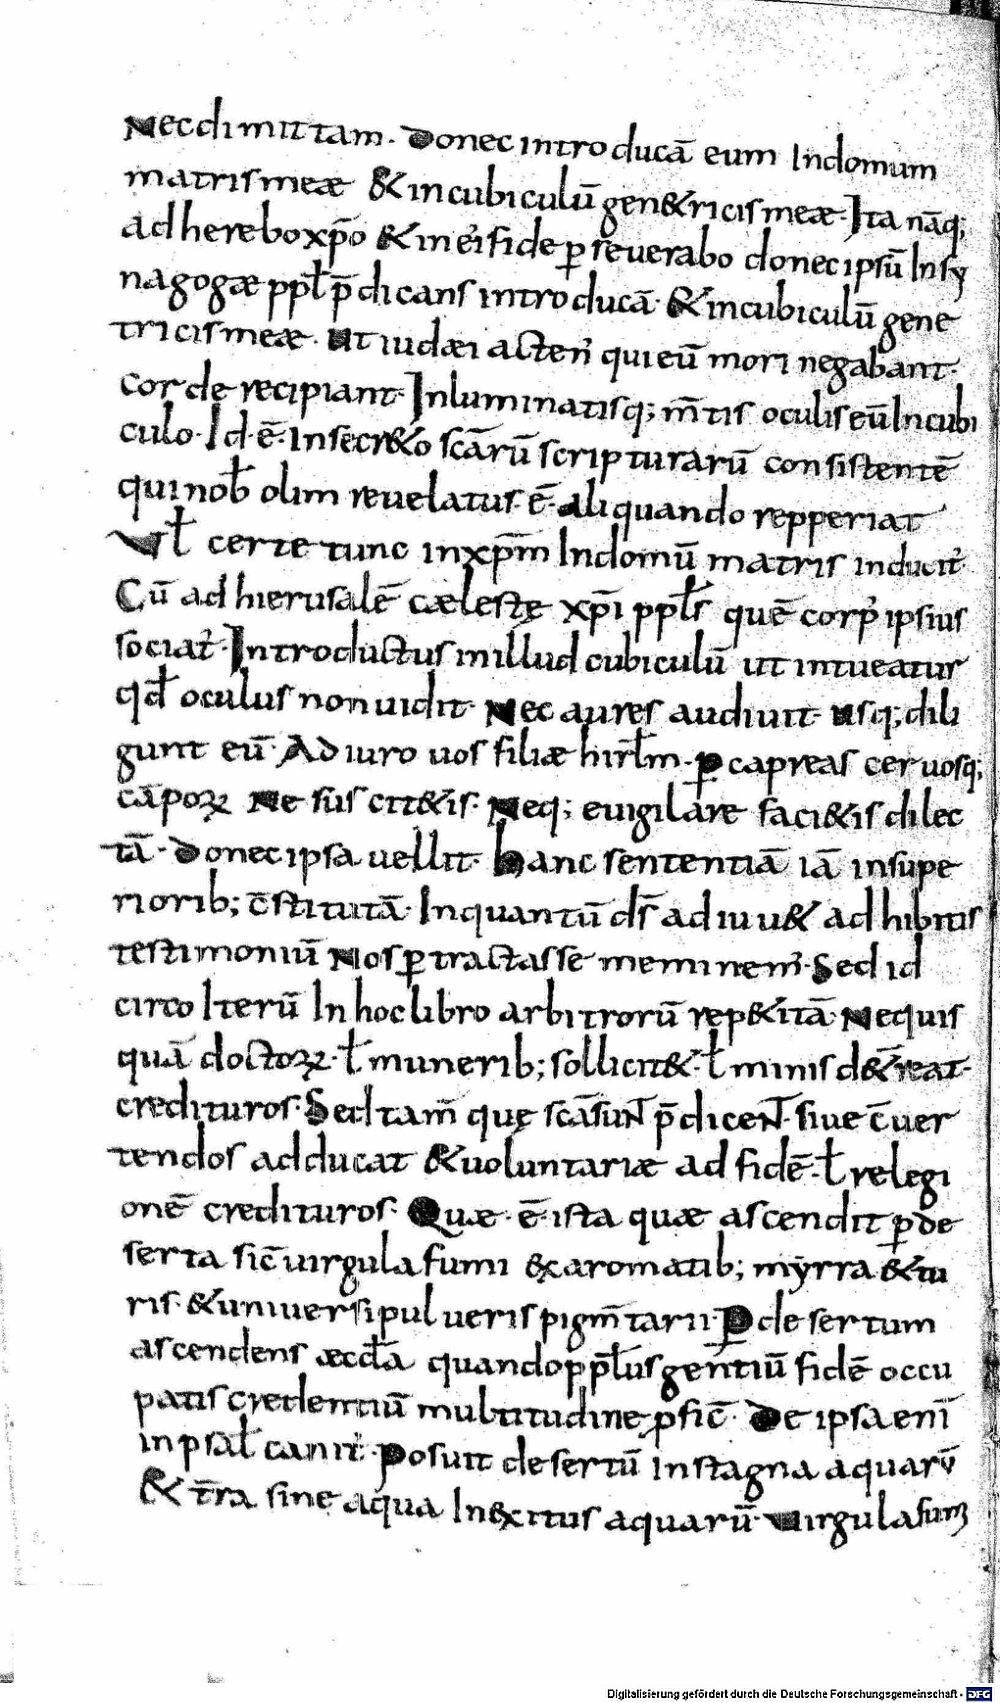 Necdimittam. Donec introducā eum Indomum
matris meæ & incubiculū gen&ricis meæ. Ita nāq;
adherebo xp̄o & in ei' fide p̱severabo donec ipsū In sy
nagogæ ppl̄ p̄dicans introducā. & incubiculū gene
tricis meæ. ut iudæi acten' qui eū mori negabant.
Corde recipiant. Inluminatisq; m̄tis oculis eū Incubi
culo. Id. ē. In secr&o scārū scripturarū consistentē
qui nob̄ olim revelatus. ē. aliquando repperiat
Vł certe tunc in xp̄m Indomū matris inducit'.
Cū ad hierusalē cælestę xp̄i ppl̄s quē corp' ipsius
sociat'. Introductus in illud cubiculū ut intueatur
qđ oculus non uidit. Nec aures audiuit. usq; dili
gunt eū. Adiuro uos filiæ hirl̄m. p̱ capreas ceruosq;
cāpoꝝ Ne suscit&is. Neq; euigilare faci&is dilec
tā. Donec ipsa uellit. hanc sententiā iā in supe
riorib; c̄stitutā. Inquantū ds̄ adiuu& adhibitis
testimoniū Nos p̱tractasse meminem'. Sed id
circo Iterū In hoc libro arbitrorū rep&itā. Nequis
quā doctoꝝ. ł munerib; sollicit&. ł minis d&̄reat.
credituros. Sed tam̄ quę scā suNt p̄diceNt. siue c̄uer
tendos adducat & uoluntariæ ad fidē. ł relegi
onē credituros. Quæ. ē. ista quæ ascendit p̱ de
serta sic̄ uirgula fumi ex aromatib; myrra & tu
ris. & uniuersi pulueris pigm̄tarii. P̱ desertum
ascendens æccl̄a quando ppl̄us gentiū fidē occu
patis credentiū multitudine p̱fic̄. De ipsa eni
in psal̄ canit'. Posuit desertū In stagna aquarū
& tr̄a sine aqua In exitus aquarū. Virgula fumi
Digitalisierung gefördert durch die Deutsche Forschungsgemeinschaft - DFG